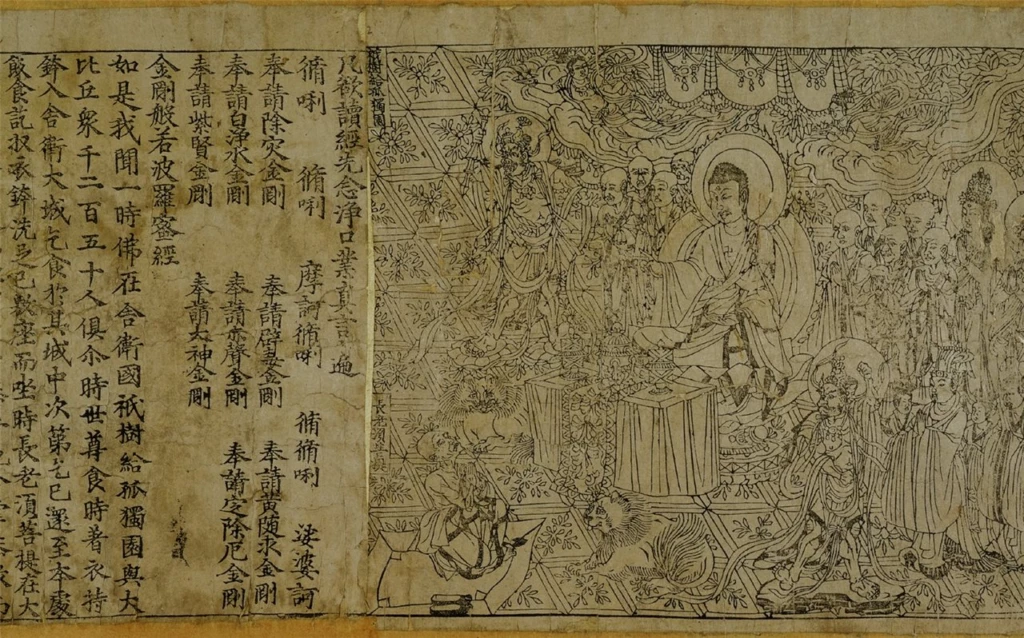 祇樹給孤獨園
長老須菩提
凡欲讀經先念淨口業真言遍
脩唎 脩唎 摩訶脩唎 脩脩唎 娑婆訶
奉請除灾金剛 奉請辟毒金剛 奉請黄随求金剛
奉請白淨水金剛 奉請赤聲金剛 奉請定除厄金剛
奉請紫賢金剛 奉請大神金剛
金剛般若波羅蜜經
如是我聞一時佛在舍衛國祇樹給孤獨園與大
比丘衆千二百五十人俱尒時世尊食時著衣持
鉢入舍衛大城乞食於其城中次第乞已還至本處
飯食訖収衣鉢洗足已敷座而坐時長老須菩提在大